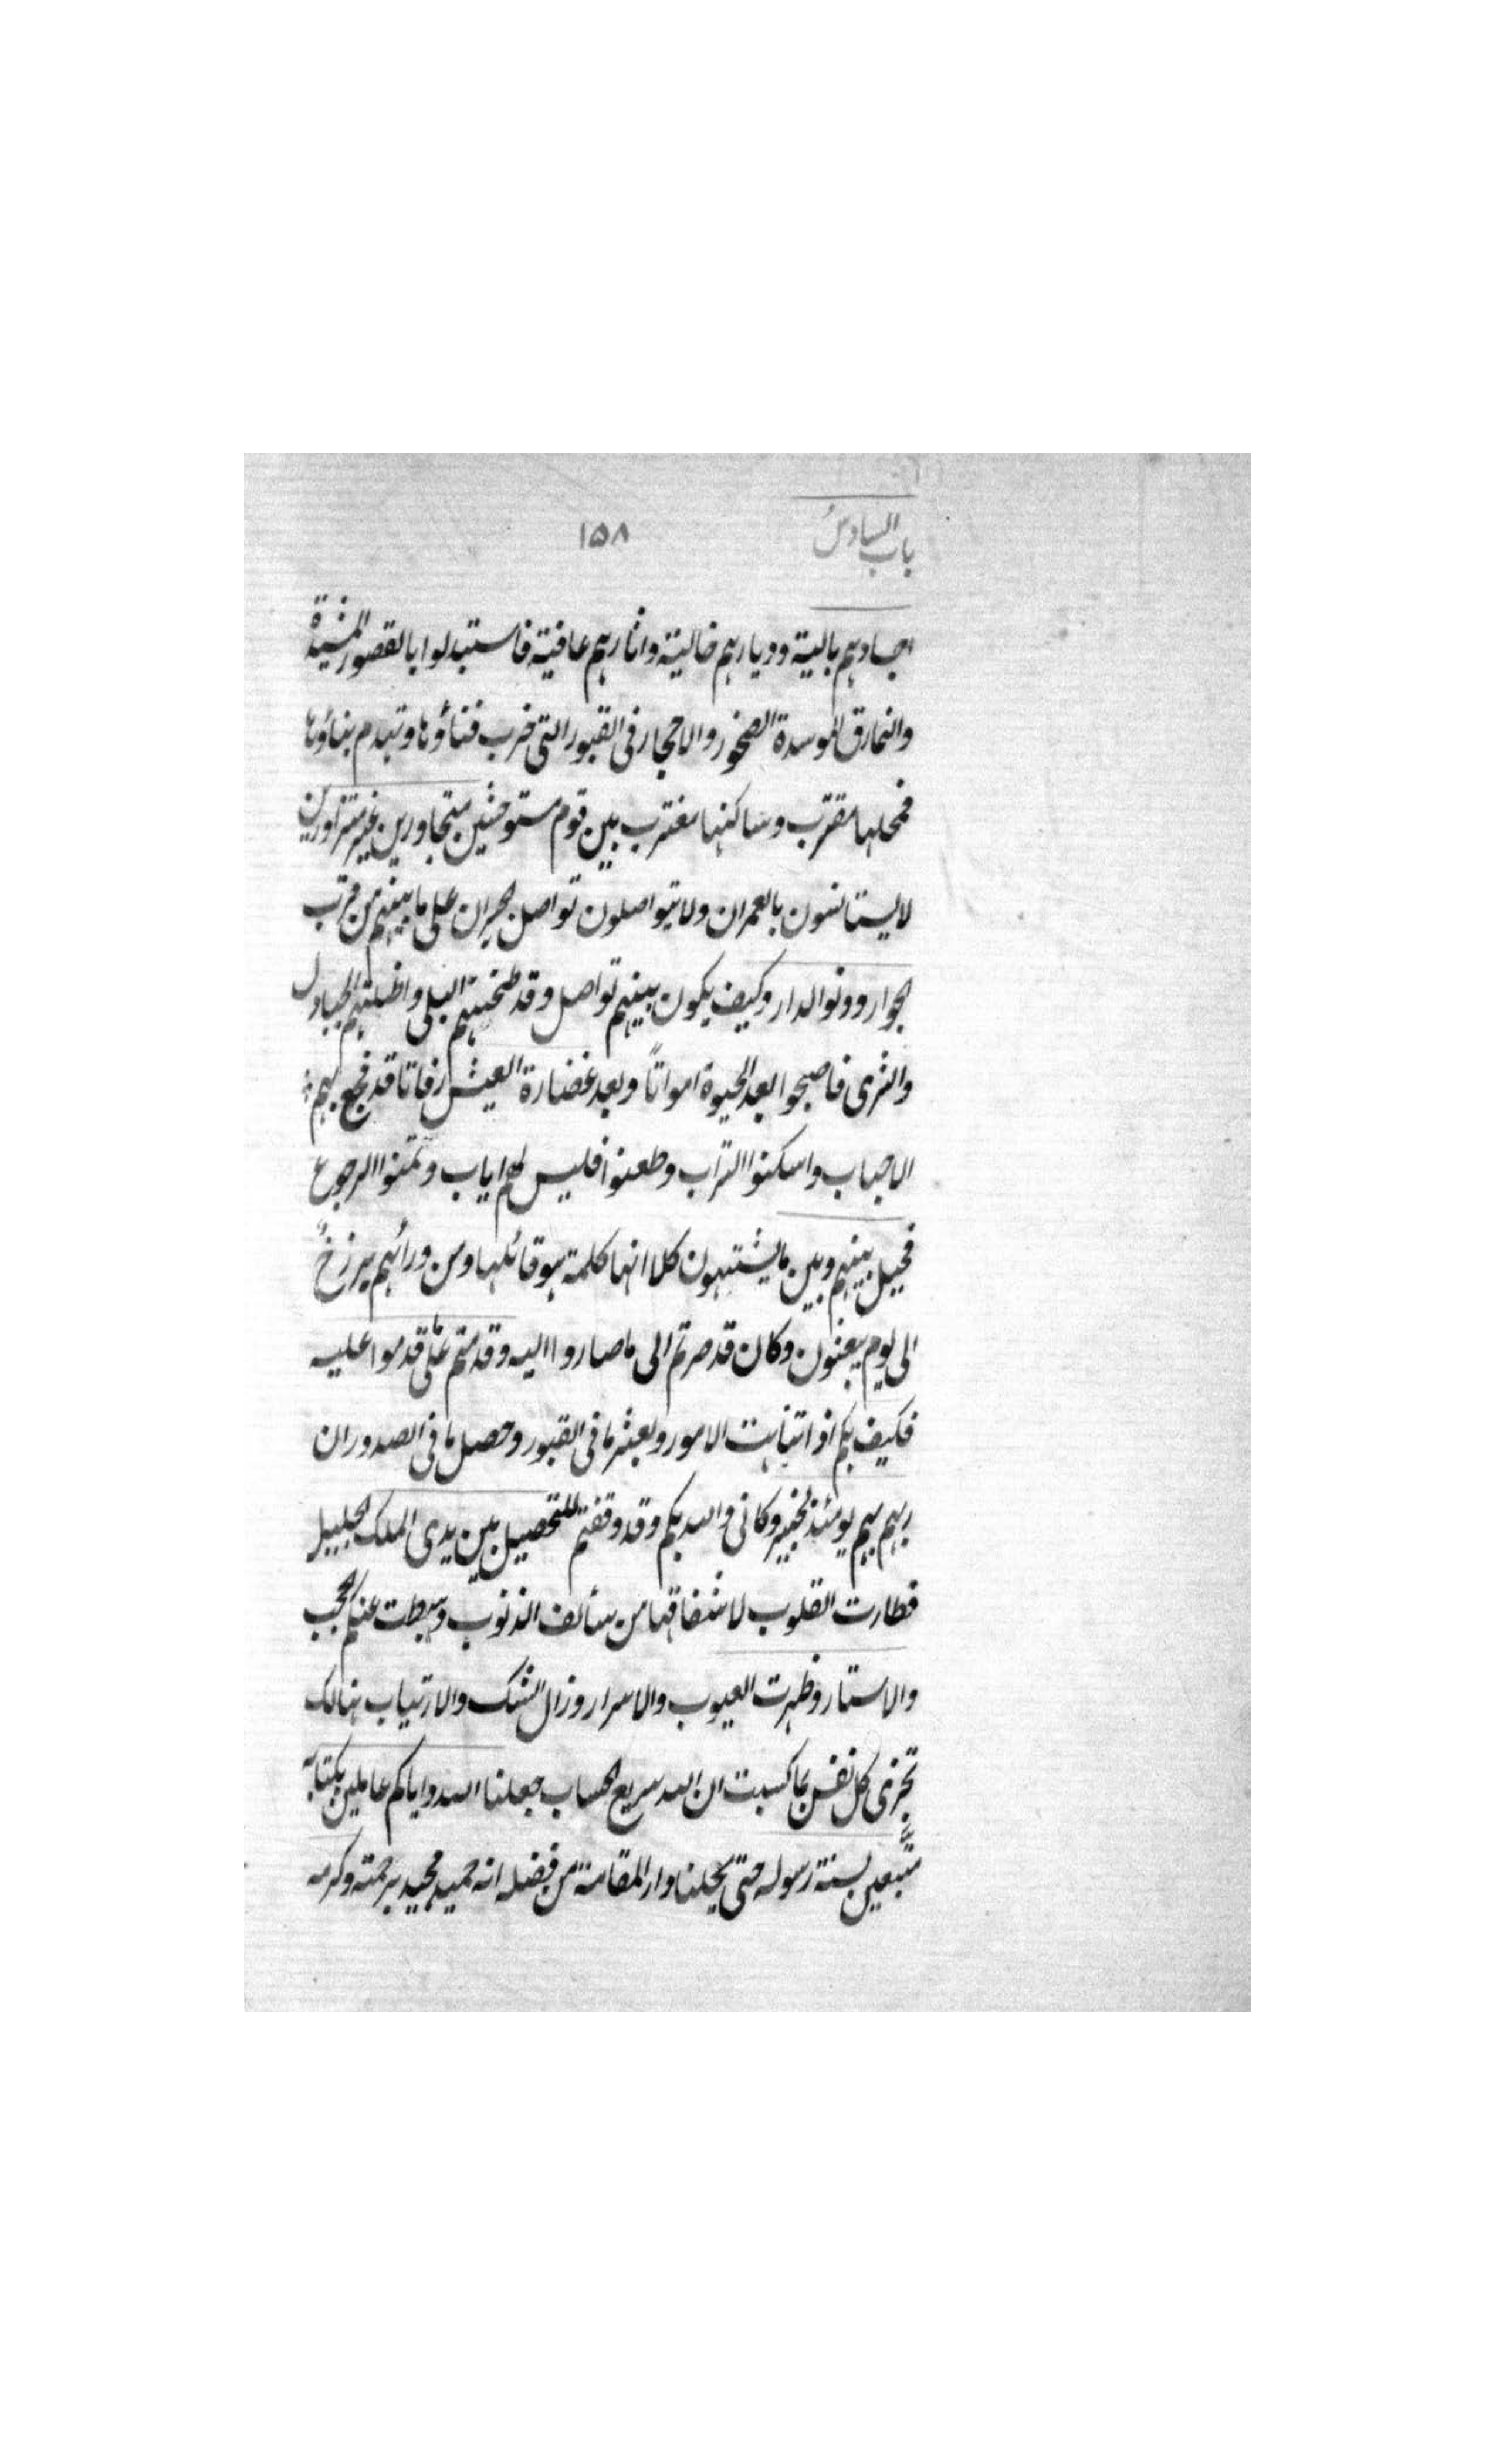 باب السادس
١٥٨
اجسادهم بالية وديارهم خالية واثارهم عافية فاستبدلوا بالقصور المشيدة
والنمارق الموسدة الصخور والاحجار فى القبور التى خرب فناؤها وتهدم بناؤها
فمحلها مقترب وساكنها مغترب بين قوم مستوحشين متجاورين غير متزاورين
لايستانسون بالعمران ولا يتواصلون تواصل الجيران على ما بينهم من قرب
الجوار ودنو الدار وكيف يكون بينهم تواصل وقد طحنتهم البلى واظلتهم الجنادل
والثرى فاصبحوا بعد الحيوة امواتاً وبعد غضارة العيش رفاتا قد فجع بهم
الاحباب واسكنوا التراب وظعنوا فليس لهم اياب وتمنوا الرجوع
فحيل بينهم وبين ما يشتهون كلا انها كلمة هو قائلها ومن ورائهم برزخٌ
الى يوم يبعثون وكان قد صرتم الى ما صاروا اليه وقدمتم على ما قدموا عليه
فكيف بكم اذا تناهت الامور وبعثر ما فى القبور وحصل ما فى الصدور ان
ربهم بهم يومئذ لخبير وكانى والله بكم وقد وقفتم للتحصيل بين يدى الملك الجليل
فطارت القلوب لاشفاقها من سألف الذنوب وهبطت عنكم الحجب
والاستار وظهرت العيوب والاسرار وزال الشك والارتياب هنالك
تجزى كل نفس بما كسبت ان الله سريع الحساب جعلنا الله واياكم عاملين بكتابه
متَّبعين بسنة رسوله حتى يحلنا دار المقامة من فضله انه حميد مجيد برحمته وكرمه